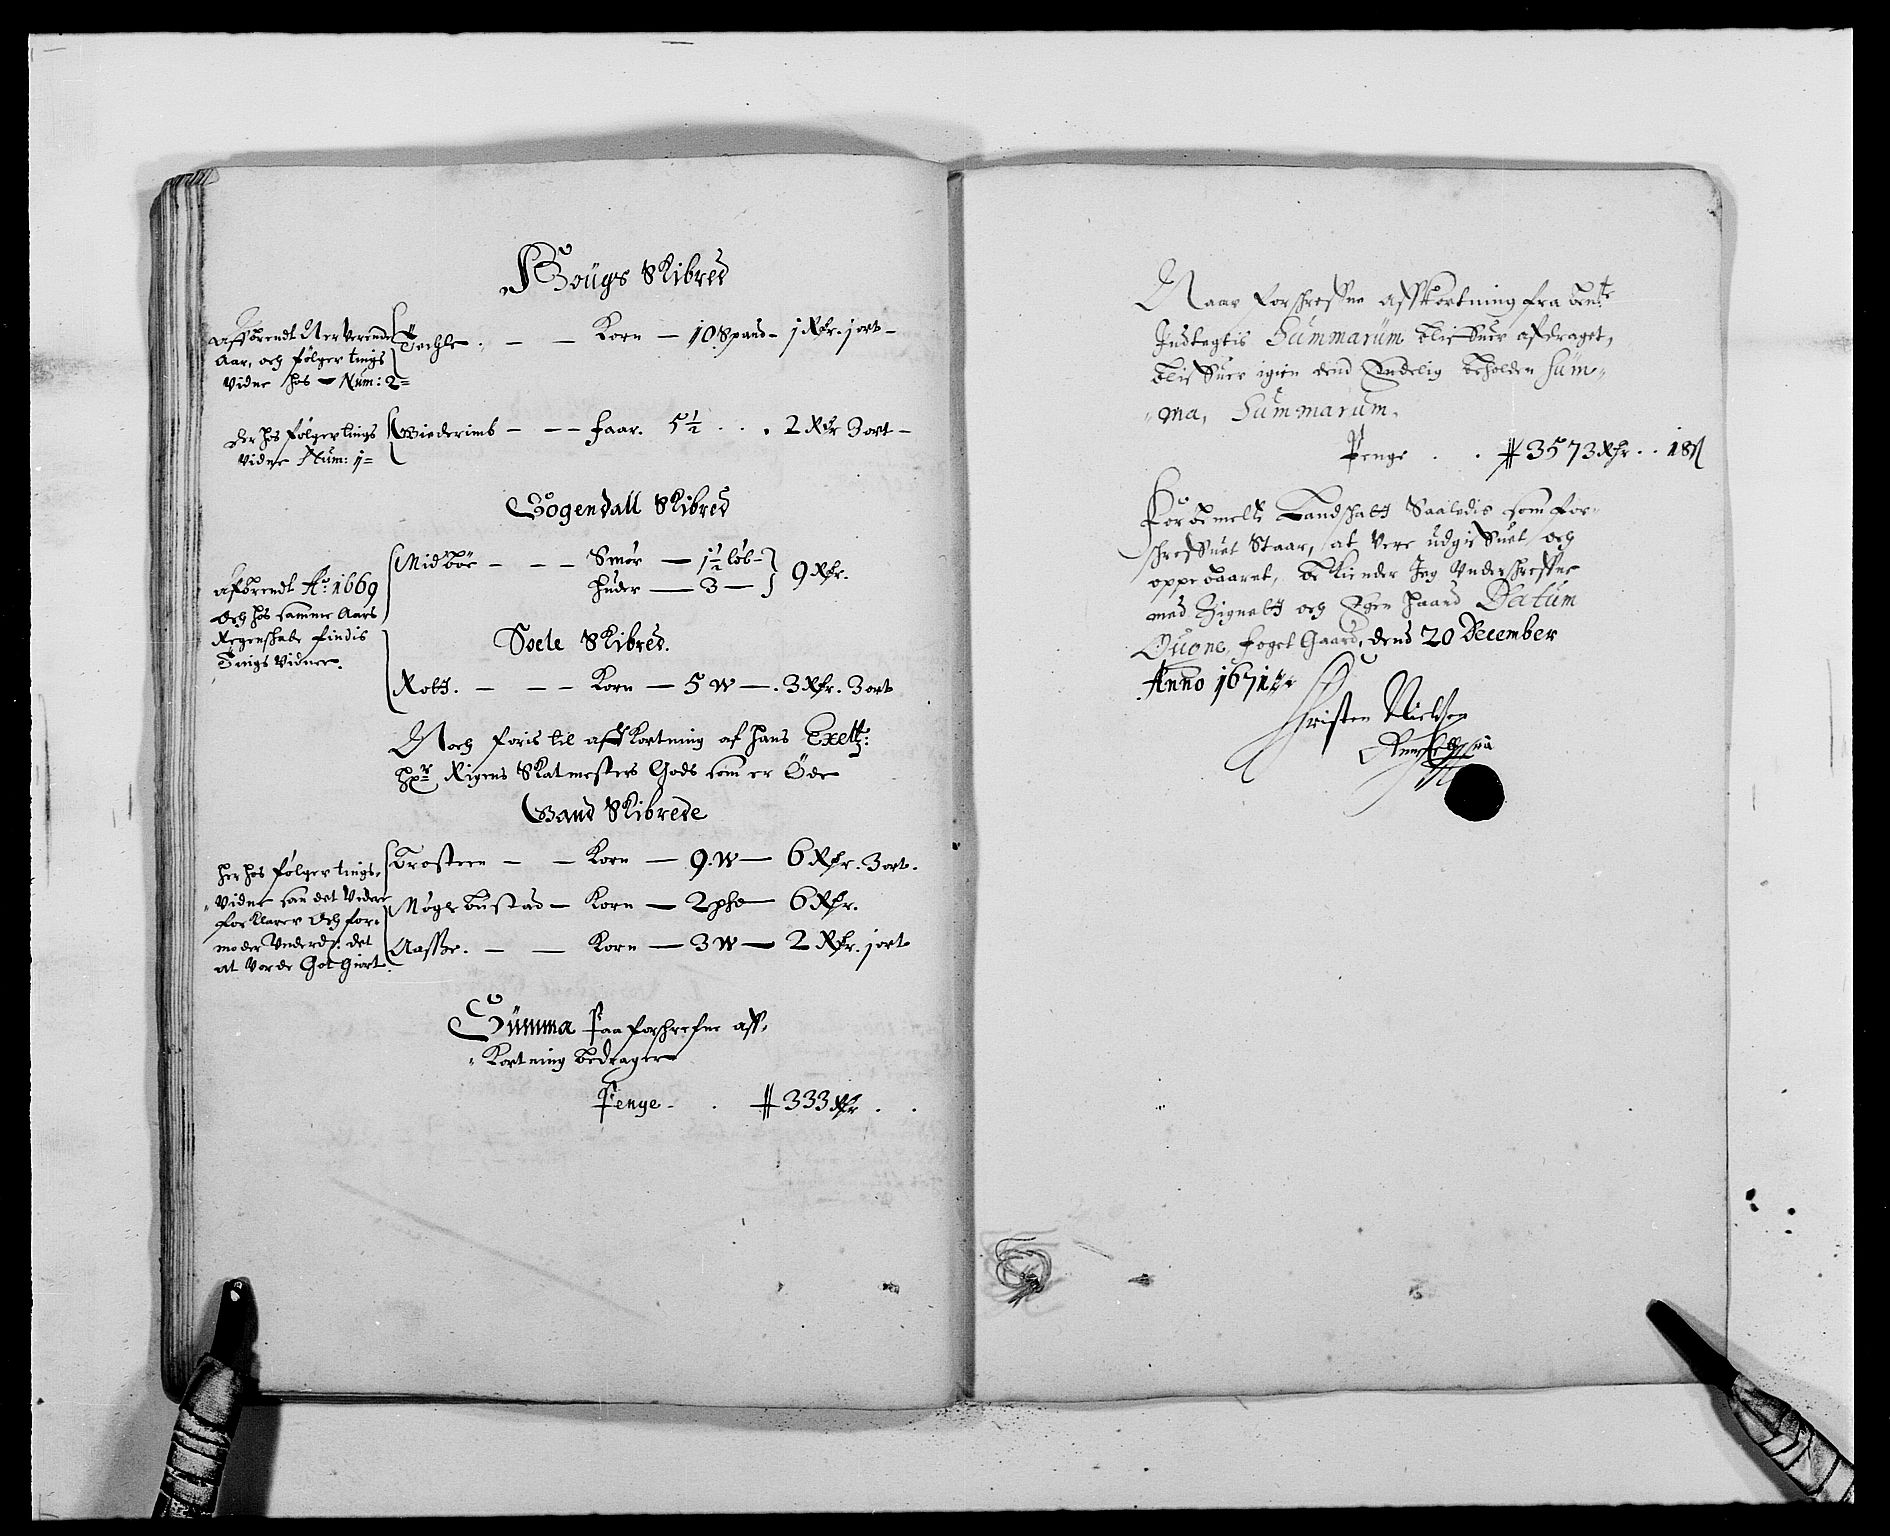 Hougs Skibred
Affbrendt Nerverende
Aar, och følger tings
Vidne hos — Num: 2
Techle — — Korn — 10 Spand — 1 Rdr. 1 ort
Der hos følger tings
Vidne Num: 1
Biederimb — — — faar. 5½ . . . 2 Rdr 3 ort
Sogendall Skibred
Afbrendt Ao: 1669
Och hos samme Aars
Regenskab findis
Tings Vidner.
Midbøe — — — Smør — 1½ løb
huder — 3 — 9 Rdr.
Soele Skibred.
Rott. — — — Korn — 5 W — 3 Rdr. 3 ort
Noch foris til affkortning af hans Exell:
Hr Rigens Skatmesters Gods som er Øde
Gand Skibrede
her hos følger tings
Vidne som det Videre
forklarer Och for-
moder Underd: det
at Vorde Got giort.
Trosteen — — Korn — 9 W — 6 Rdr. 3 ort.
Møglebustad — Korn — 2 pd — 6 Rdr.
Aasse. — — Korn — 3 W — 2 Rdr. 1 ort
Summa Paa forschrefne aff-
Kortning bedrager
Penge . . 333 Rdr . .
Naar forschreffne affkortning fra bemte
Indtegtis Summarum bliffuer afdraget,
bliffuer igien dend Endelig beholden Sum-
ma, Summarum.
Penge . . 3573 Rdr . . 18 s
Forbemelte Landschatt Saaledis som for-
schreffuet Staar, at Vere udgiffuet och
oppebaaret, bekiender Jeg Underschreffne
med Zignett och Egen haand Datum
Huone foget Gaard, dend 20 December
Anno 1671
Christen Nielsen